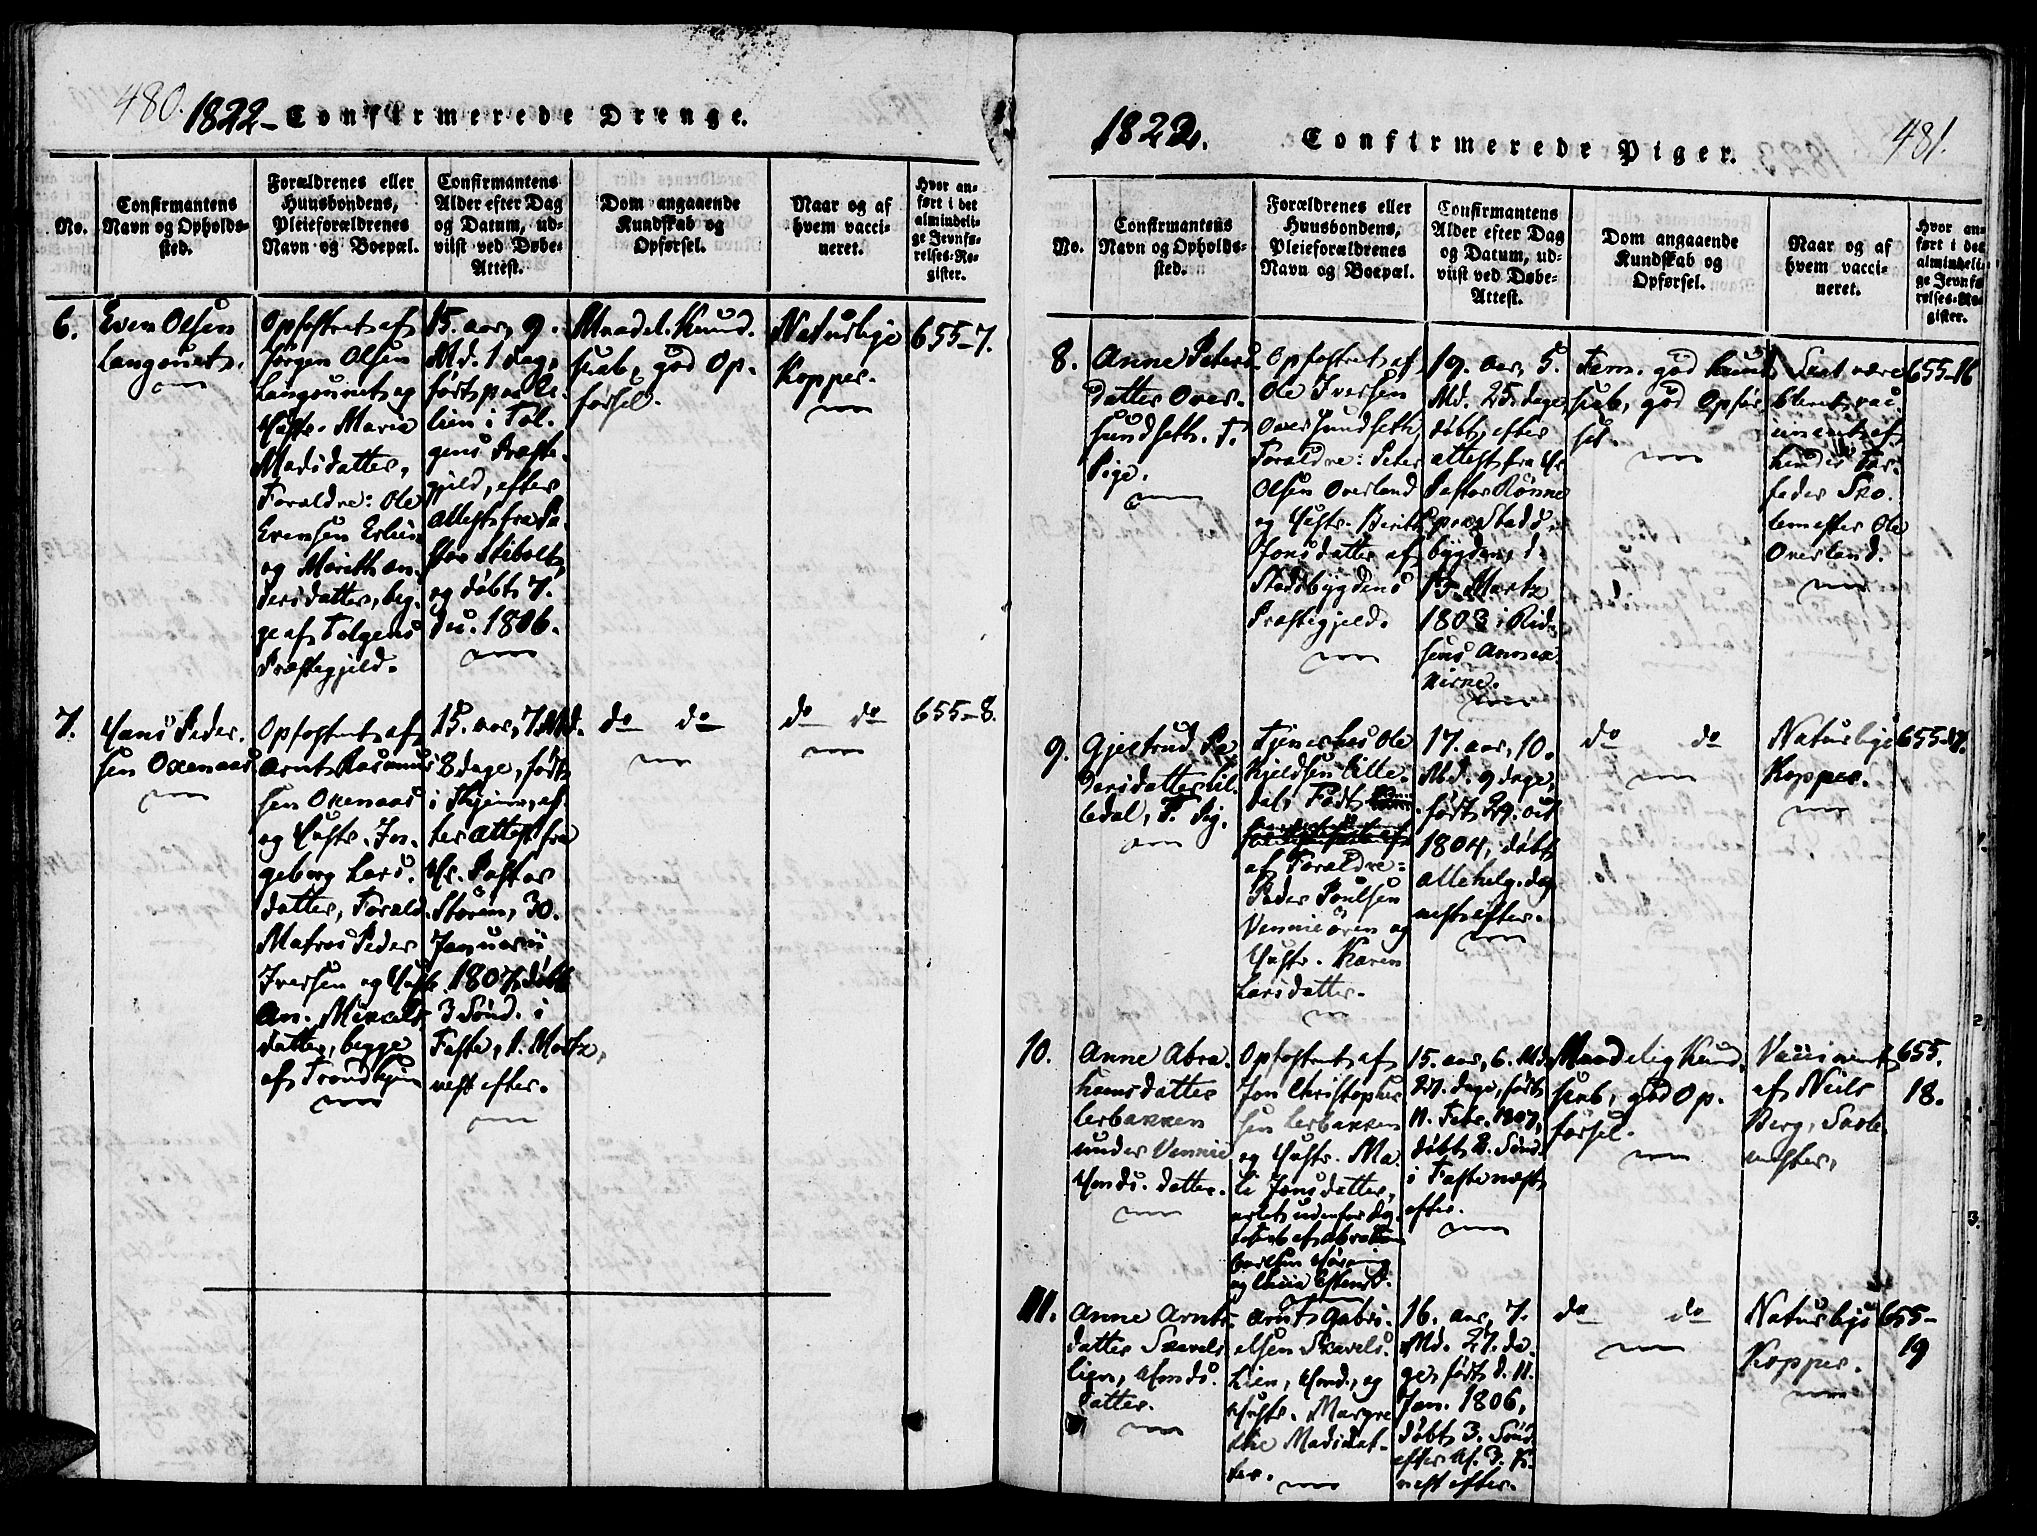 480. 1822– Confirmerede Drenge.
No.
Confirmantens
Navn og Opholds-
sted.
Forældrenes eller
Huusbondens,
Pleieforældrenes
Navn og Boepæl.
Confirmantens
Alder efter Dag
og Datum, ud-
viist ved Døbe-
Attest.
Dom angaaende
Kundskab og
Opførsel.
Naar og af
hvem vacci-
neret.
Hvor an-
ført i det
almindeli-
ge Jevnfø-
relses-Re-
gister.
6.
Even Olsen
Langønet.
Opfostret af
Jørgen Olsen
Langønnet og
Hustr. Marie
Madsdatter,
Forældre: Ole
Evensen Erlien
og Marith An-
dersdatter, beg-
ge af Tolgens
Præstegjeld.
15. aar, 9.
Md. 1 dag,
født paa Er-
lien i Tol-
gens Præste-
gjeld, efter
Attest fra Pa-
stor Stibolt
og døbt 7.
Du. 1806.
Maadel. Kund-
skab, god Op-
førsel.
Naturlige
Kopper.
655–7.
7.
Hans Peder-
sen Oxenaas
Opfostret af
Arnt Rasmus-
sen Oxenaas
og Hustr. In-
geborg Lars-
datter, Foræld.
Matros Peder
Iversen og Hustr.
An. Mikkels-
datter, begge
af Trondhjem
15. aar, 7 Md.
8 dage, født
i Thjem, ef-
ter Attest fra
Hr. Pastor
Storm, 30.
Januarii
1807, døbt
3 Sønd. i
Faste, 1. Martz,
næst efter.
do do
do do
655–8.
1822. Confirmerede Piger. 481.
No.
Confirmantens
Navn og Opholds-
sted.
Forældrenes eller
Huusbondens,
Pleieforældrenes
Navn og Boepæl.
Confirmantens
Alder efter Dag
og Datum, ud-
viist ved Døbe-
Attest.
Dom angaaende
Kundskab og
Opførsel.
Naar og af
hvem vacci-
neret.
Hvor an-
ført i det
almindeli-
ge Jevnfø-
relses-Re-
gister.
8.
Anne Peters-
datter Over-
sundseth. T.
Pige.
Opfostret af
Ole Iversen
Oversundseth,
Forældre: Peter
Olsen Overland
og Hustr. Berith
Jonsdatter af
Stadsbygdens
Præstegjeld.
19. aar, 5.
Md. 25. dage,
døbt, efter
attest fra Hr.
Pastor Rønne
paa Stads-
bygden, d.
Martz
1803 i Ris-
sens Annex
Kirke.
Tem. god Kund-
skab, god Opfør-
sel.
Skal være
blevet vac-
cineret af
hendes Far-
feder Sko-
lemester Ole
Overland.
655–16
9.
Gjertrud Pe-
dersdatter Lil-
ledal, T. Pig.
Tjener hos Ole
Kjeldsen Lille-
dal, Født
af Forældre:
Peder Poulsen
Vennieøren og
Hustr. Karen
Larsdatter.
17. aar, 10.
Md. 9 dage,
født 29. Oct
1804, døbt
Allehelg. dag
næst efter.
do do
Naturlige
Kopper.
655–17.
10.
Anne Abra-
hamsdatter
Lerbakken
under Vennie
Hmds. datter.
Opfostret af
Jon Christopher-
sen Lerbakken
og Hustr. Ma-
li Jonsdatter,
avlet udenfor Æg-
teskab af Abraham
og
15. aar, 6. Md.
27. dage, født
11. Febr. 1807,
døbt 2. Sønd.
i Faste næst
efter.
Maadelig Kund-
skab, god Op-
førsel.
Vaccineret
af Niels
Berg, Skole-
mester,
655.
18.
11.
Anne Arnts-
datter Skavels-
lien, Hmds.
datter.
Arnt Gabri-
elsen Skavels-
lien, Hmd., og
Hustr. Margre-
the Madsdat-
ter.
16. aar, 7.
Md. 27. da-
ge, født d. 11.
Jan. 1806,
døbt 3. Sønd.
efter H. 3. K.
næst efter.
do do
Naturlige
Kopper.
655–
19